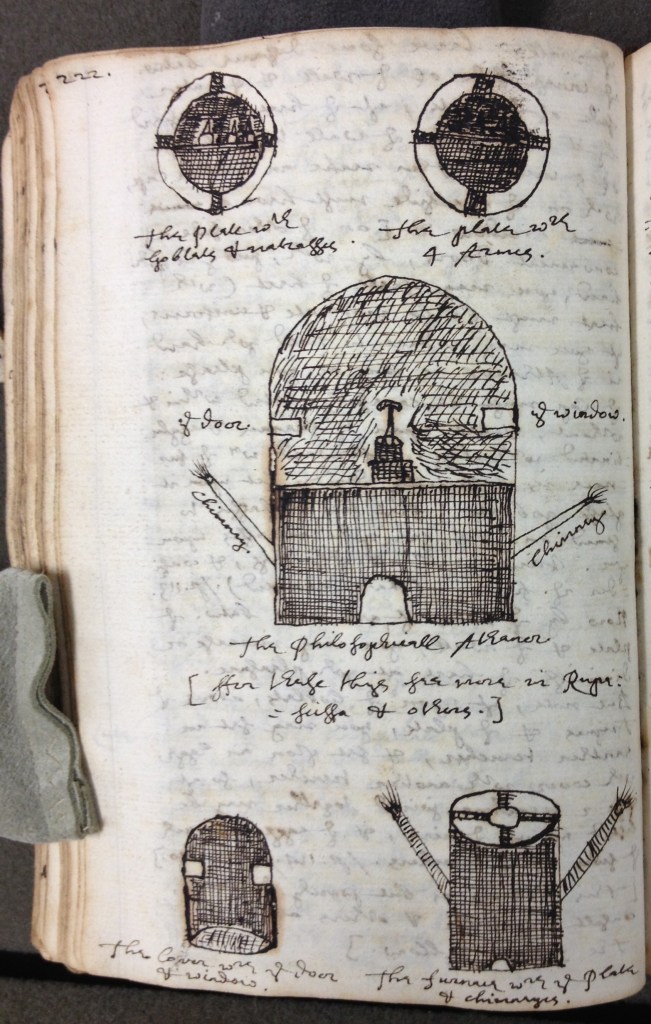 222.
The Plate wth
Goblets & matrasses.
The plate wth
4 Armes.
ye door.
ye window.
chimney.
chimney
The Philosophicall Athanor
[ ffor these things see more in Rupe:
= scissa & others. ]
The Cover wth ye door
& window.
The furnace wth ye Plate
& chimneyes.